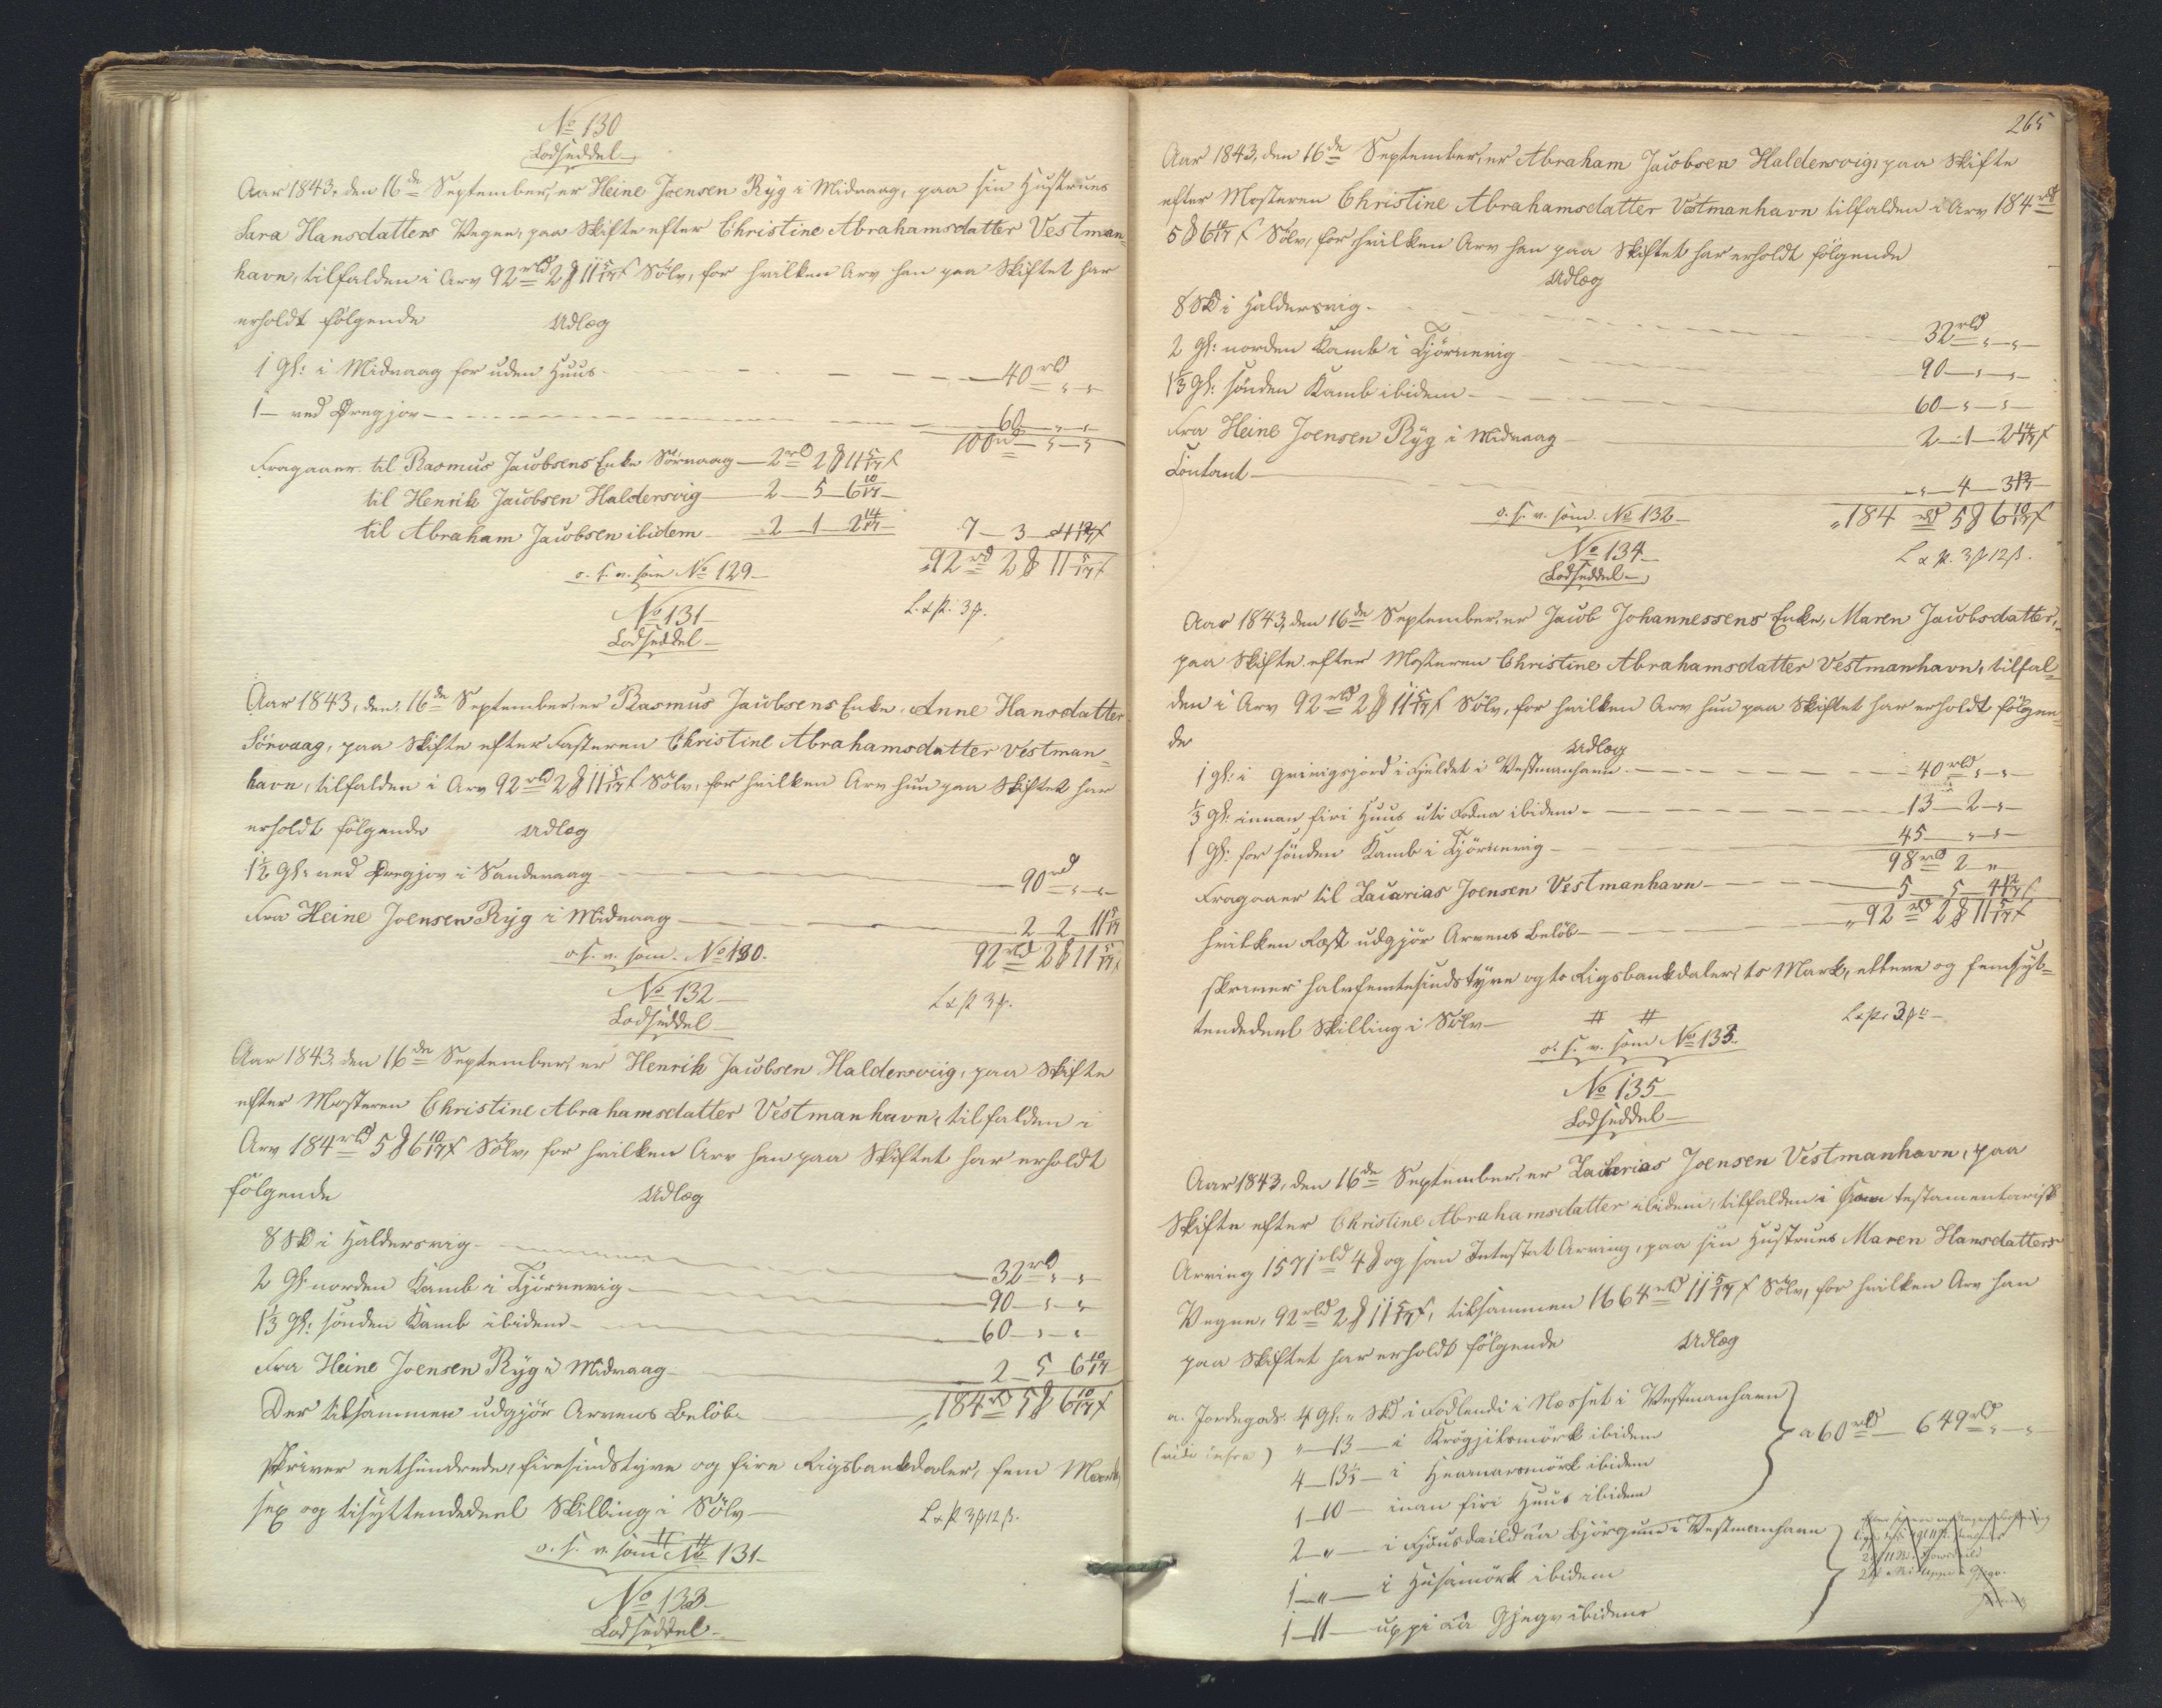 No 130
Lodseddel
Aar 1843, den 16de September, er Heine Joensen Ryg i Midvaag, paa sin Hustrues
Sara Hansdatters Vegne, paa Skifte efter Christine Abrahamsdatter Vestman-
havn, tilfalden i Arv 92 rbd 2 ₰ 11 5/17 ß Sølv, for hvilken Arv han paa Skiftet har
erholdt følgende Udlæg
1 Gl: i Midvaag for uden Huus 40 rbd " "
1 — ved Øregjov 60 " "
100 rbd " "
Fragaaer til Rasmus Jacobsens Enke Sörvaag 2 rbd 2 ₰ 11 5/17 ß
til Henrik Jacobsen Haldersvig 2 5 6 10/17
til Abraham Jacobsen ibidem 2 1 2 14/17 7 3 4 12/17 ß
o. s. v. som No 129 92 rbd 2 ₰ 11 5/17 ß
No 131 L. & P. 3 ß.
Lodseddel
Aar 1843, den 16de September, er Rasmus Jacobsens Enke, Anne Hansdatter
Sörvaag, paa Skifte efter Fasteren Christine Abrahamsdatter Vestman-
havn, tilfalden i Arv 92 rbd 2 ₰ 11 5/17 ß Sølv, for hvilken Arv hun paa Skiftet har
erholdt følgende Udlæg
1½ Gl: ved Øregjov i Sandevaag 90 rbd " "
Fra Heine Joensen Ryg i Midvaag 2 2 11 5/17
o. s. v. som No 130. 92 rbd 2 ₰ 11 5/17 ß
No 132 L & P 3 ß.
Lodseddel
Aar 1843, den 16de September, er Henrik Jacobsen Haldersviig, paa Skifte
efter Mosteren Christine Abrahamsdatter Vestmanhavn, tilfalden i
Arv 184 rbd 5 ₰ 6 10/17 ß Sølv, for hvilken Arv han paa Skiftet har erholdt
følgende Udlæg
8 Skd i Haldersvig 32 rbd " "
2 Gl: norden Kamb i Tjörnevig 90 " "
1⅓ Gl: sönden Kamb ibidem 60 " "
Fra Heine Joensen Ryg i Midvaag 2 5 6 10/17
Der tilsammen udgjør Arvens Beløb 184 rbd 5 ₰ 6 10/17 ß
skriver eethundrede, firesindstyve og fire Rigsbankdaler, fem Mark,
sex og tisyttendedeel Skilling i Sølv L & P 3 ₰ 12 ß.
o. s. v. som No 131
No 133
Lodseddel
265
Aar 1843, den 16de September, er Abraham Jacobsen Haldersvig, paa Skifte
efter Mosteren Christine Abrahamsdatter Vestmanhavn tilfalden i Arv 184 rbd
5 ₰ 6 10/17 ß Sølv, for hvilken Arv han paa Skiftet har erholdt følgende
Udlæg
8 Skd i Haldersvig 32 rbd " "
2 Gl: norden Kamb i Tjörnevig 90 " "
1⅓ Gl: sönden Kamb ibidem 60 " "
Fra Heine Joensen Ryg i Midvaag 2 1 2 14/17 ß
Contant " 4 3 13/17
o. s. v. som No 132 184 rbd 5 ₰ 6 10/17 ß
No 134 L & P. 3 ₰ 12 ß.
Lodseddel
Aar 1843, den 16de September, er Jacob Johannessens Enke, Maren Jacobsdatter,
paa Skifte efter Mosteren Christine Abrahamsdatter Vestmanhavn, tilfal-
den i Arv 92 rbd 2 ₰ 11 5/17 ß Sølv, for hvilken Arv hun paa Skiftet har erholdt følgen-
de Udlæg
1 Gl: i Grivigsjord i Fjeldet i Vestmanhavn 40 rbd " "
⅓ Gl: innan firi Huus uti Fodna ibidem 13 2 "
1 Gl: for sönden Kamb i Tjörnevig 45 " "
98 rbd 2 "
Fragaaer til Zacarias Joensen Vestmanhavn 5 5 4 12/17 ß
hvilken Rest udgjør Arvens Beløb 92 rbd 2 ₰ 11 5/17 ß
skriver halvfemtesindstyve og to Rigsbankdaler, to Mark, elleve og femsyt-
tendedeel Skilling i Sølv L & P: 3 ß
o. s. v. som No 133.
No 135
Lodseddel
Aar 1843, den 16de September, er Zacarias Joensen Vestmanhavn, paa
Skifte efter Christine Abrahamsdatter ibidem, tilfalden i som testamentarisk
Arving 1571 rbd 4 ₰ og som Intestat Arving, paa sin Hustrues Maren Hansdatters
Vegne, 92 rbd 2 ₰ 11 5/17 ß, tilsammen 1664 rbd 11 5/17 ß Sølv, for hvilken Arv han
paa Skiftet har erholdt følgende Udlæg
a. Jordegods. 4 Gl: " Skd i Fodlendi i Nesset i Vestmanhavn
(vide infra) " 13 — i Krögjitsmörk ibidem a 60 rbd 649 rbd " "
4 13⅓ — i Hearnarsmörk ibidem
1 10 — inan firi Huus ibidem
2 " — i Fjóusdaild áa Björgum i Vestmanhavn
1 " — i Húsamörk ibidem
1 11 — uppi áa Gjegv ibidem